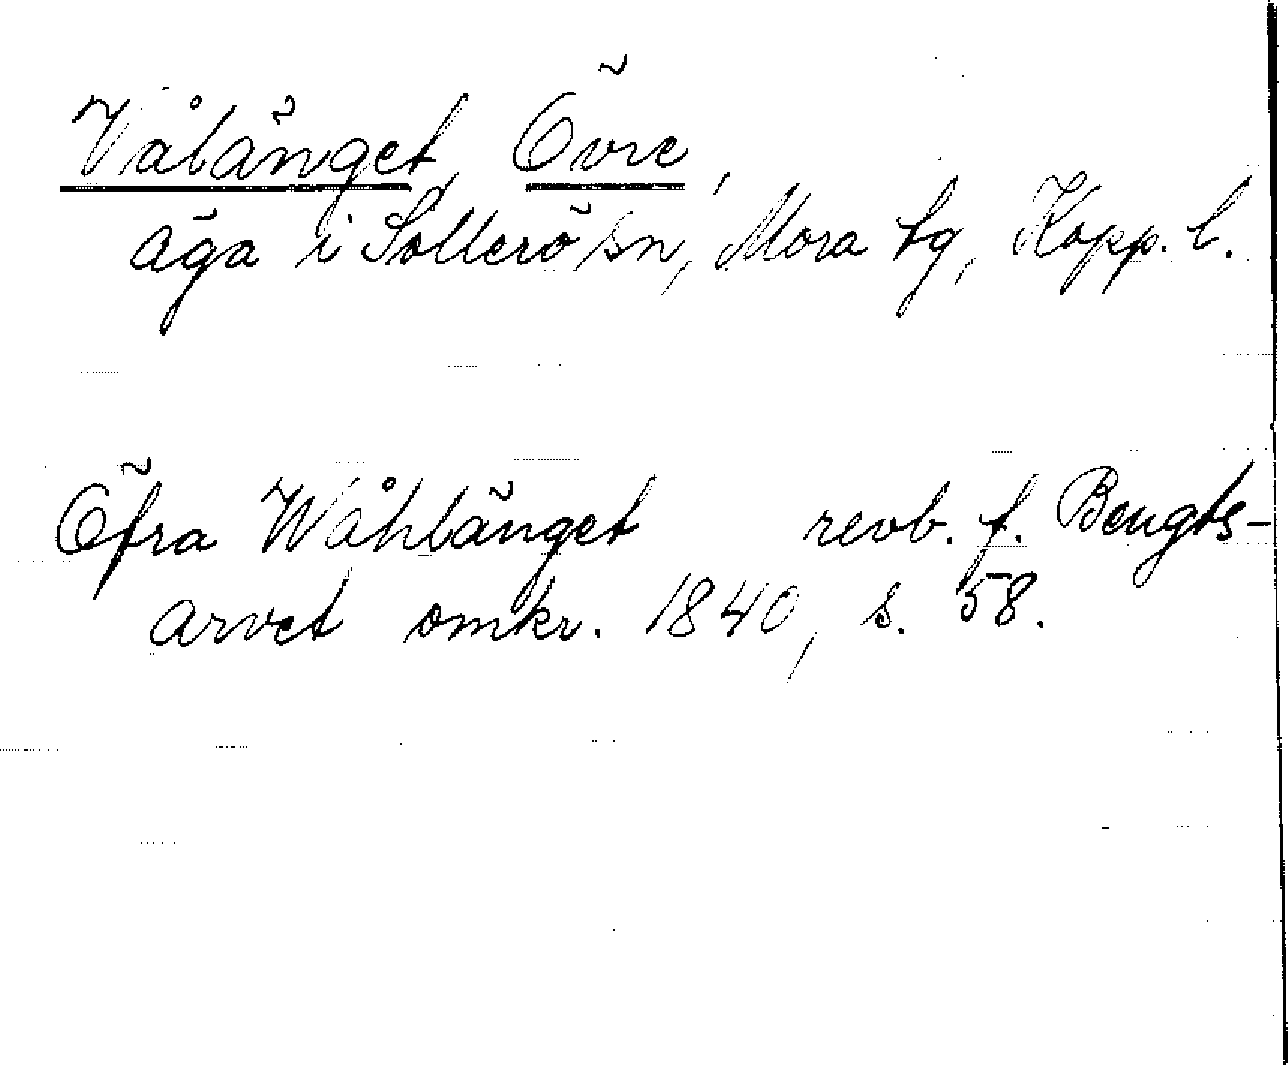 Vålänget, Övre,
äga i Sollerö sn, Mora tg, Kopp. l.
Öfra Wåhlänget revb. f. Bengts-
arvet omkr. 1840, s. 58.